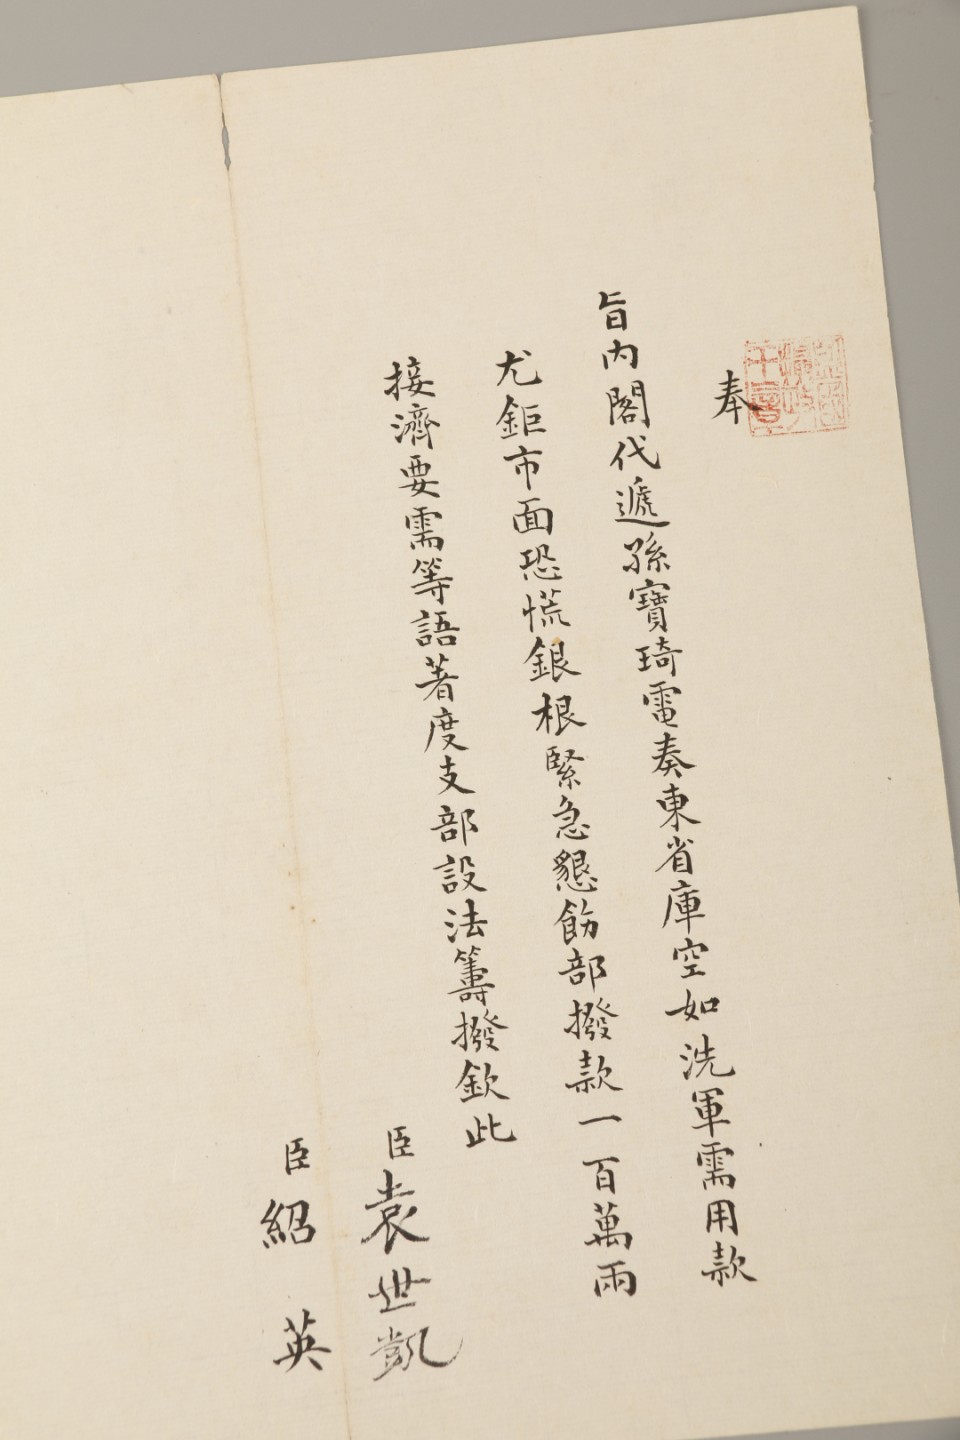 奉
旨内閣代遞孫寶琦電奏東省庫空如洗軍需用款
尤鉅市面恐慌銀根緊急懇飭部撥款一百萬兩
接濟要需等語著度支部設法籌撥欽此
臣袁世凱
臣紹英